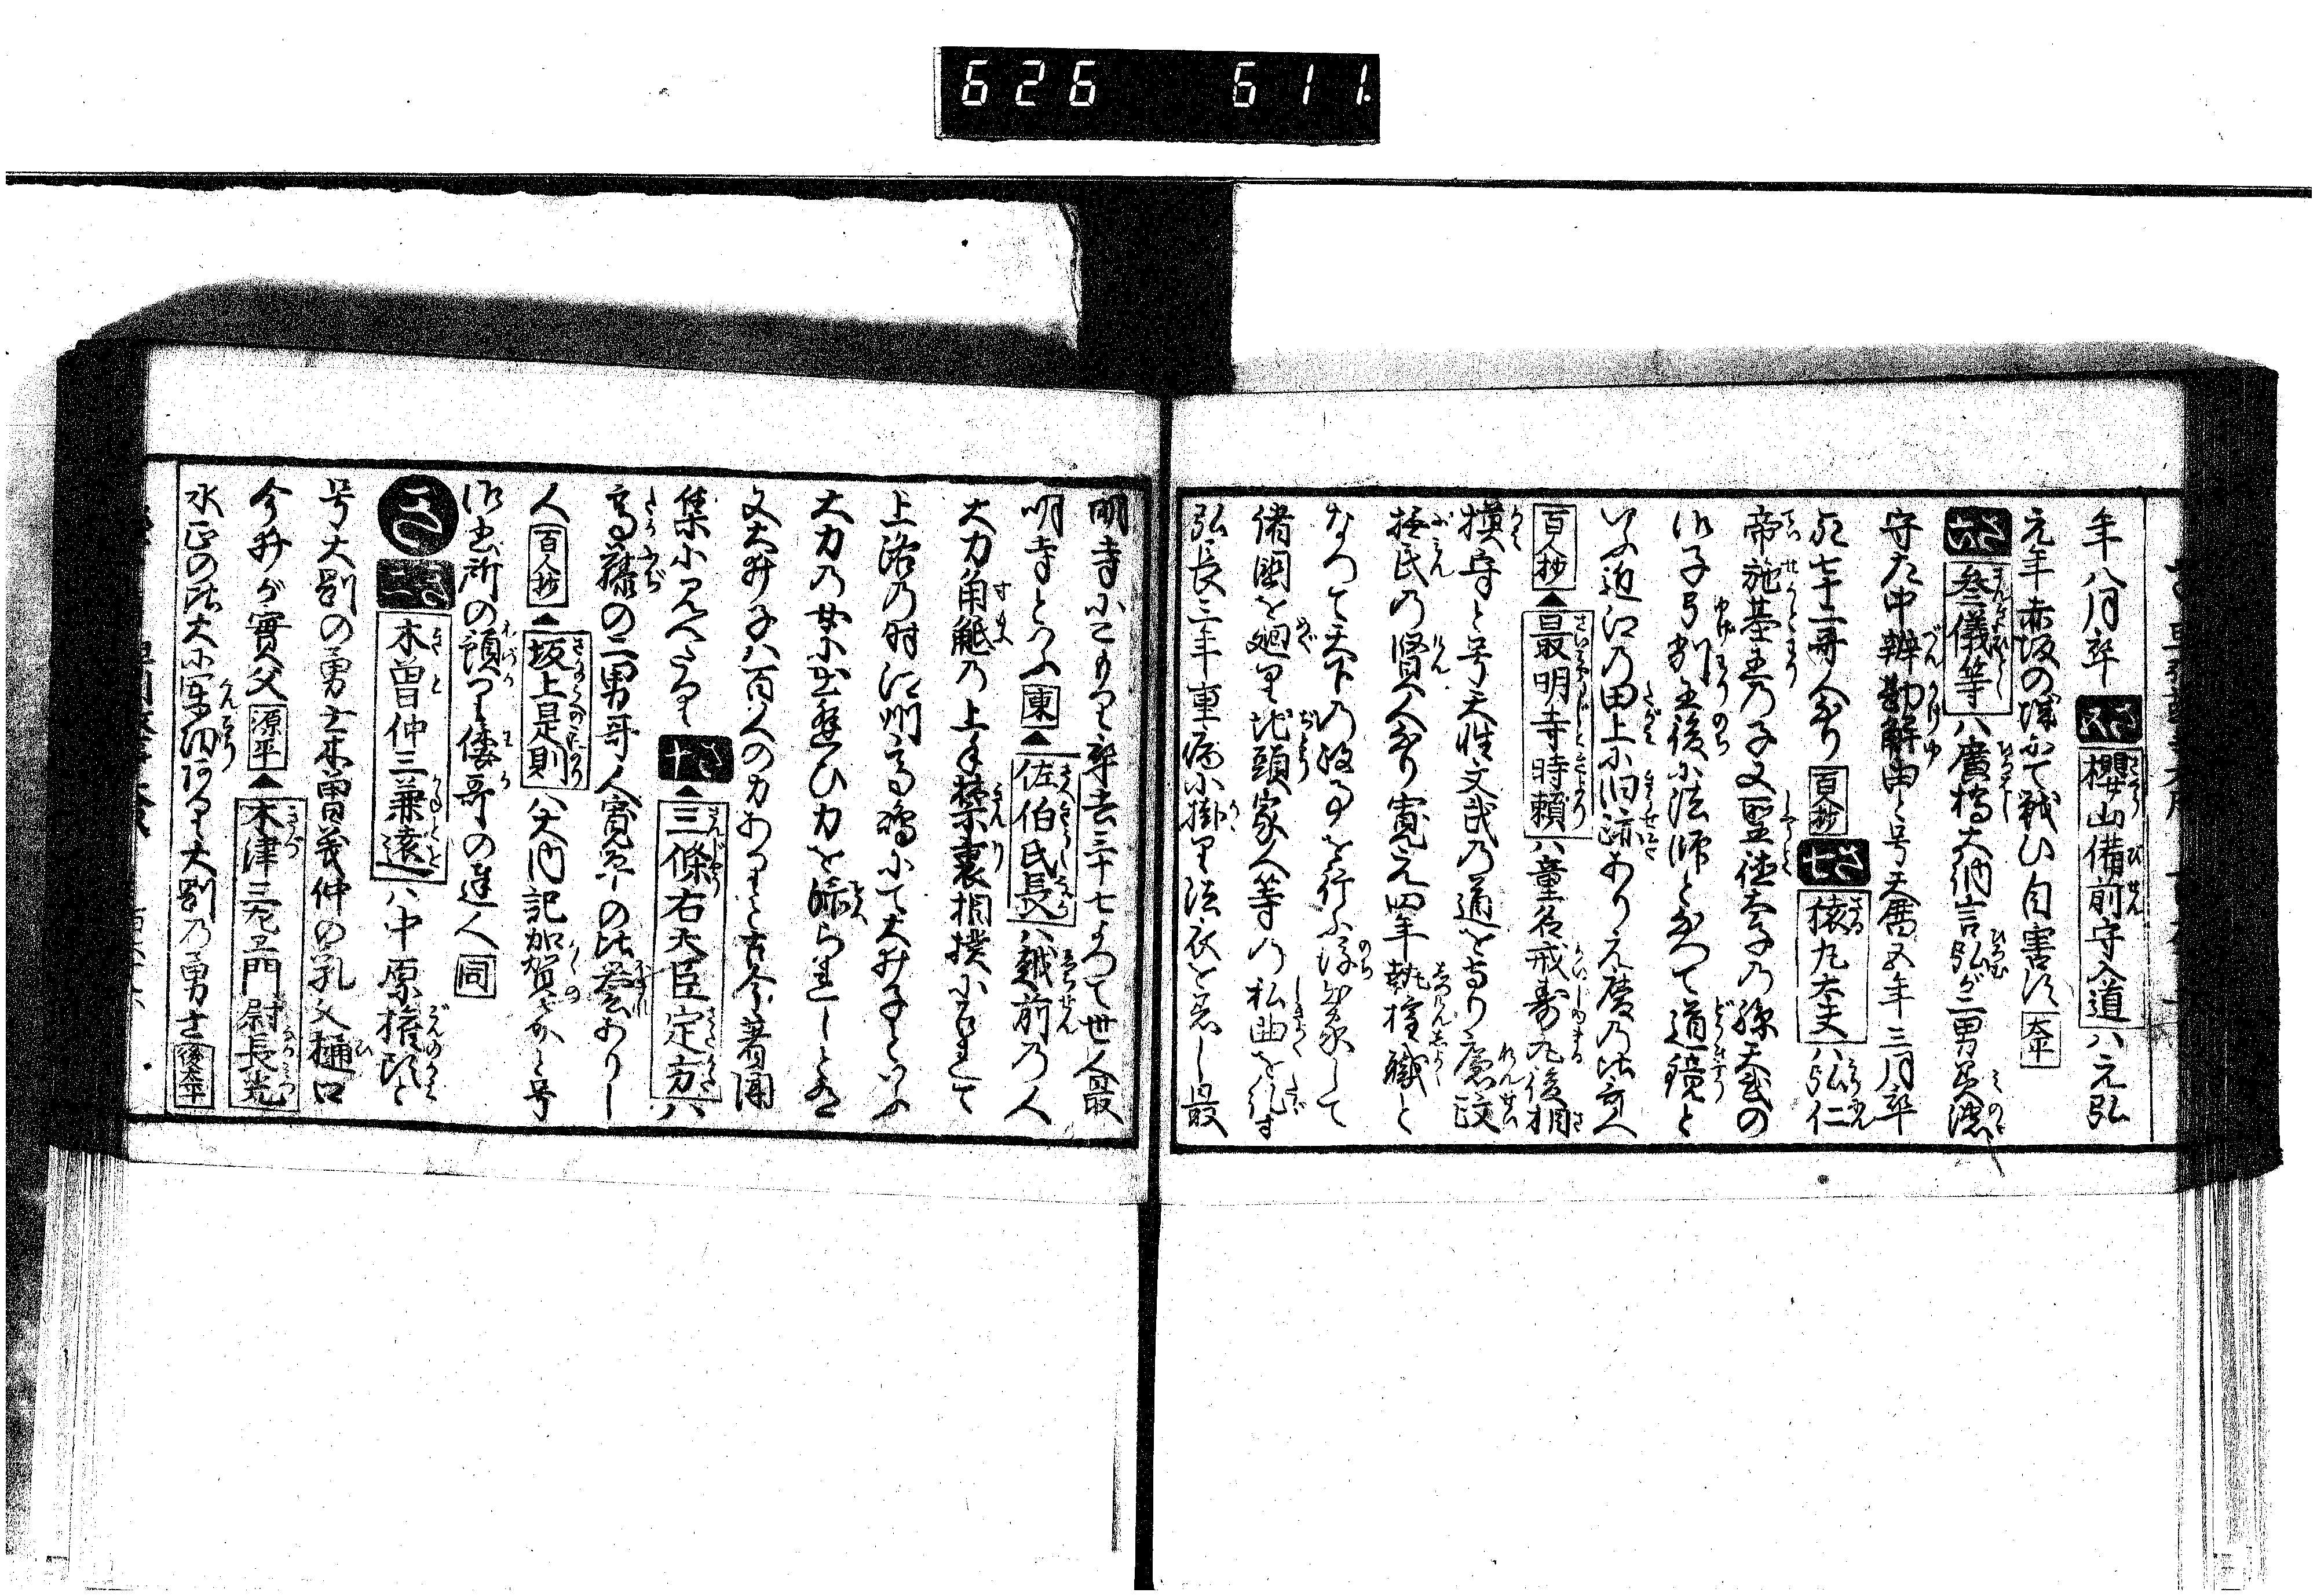 626 611.
年八月卒 さ五 櫻山備前守入道ハ元弘
元年赤坂の城にて戦ひ自害す 太平
さ六 参儀等ハ廣橋大納言弘が二男美濃
守左中辨勘解由と号天暦五年三月卒
年七十二哥人なり 百抄 さ七 猿丸大夫ハ弘仁
帝施基王乃子又聖徳太子乃孫天武の
御子弓削王後に法師となつて道鏡と
いふ近江乃田上に旧跡あり元慶乃比哥人
百人抄 最明寺時頼ハ童名戒寿丸後相
模守と号天性文武乃道を守り廉政
撫民の賢人なり寛元四年執権職と
なつて天下乃政事を行ふ後出家して
諸国を廻り地頭家人等の私曲を糺す
弘長三年重病に掛り法衣を着し最
明寺にこもり卒去三十七よつて世人最
明寺といふ 東 佐伯氏長ハ越前乃人
大力角觝乃上手禁裏相撲に召れて
上洛乃時江州高嶋にて大井子といふ
大力の女に出逢ひ力を添られしとぞ
又大井子ハ百人の力ありと古今著聞
集に見へたり さ十 三條右大臣定方ハ
高藤の二男哥人寛平の比誉ありし
人 百人抄 坂上是則ハ大内記加賀介と号
御書所の預り倭哥の達人 同
き きニ 木曽仲三兼遠ハ中原権頭と
号大剛の勇士木曽義仲の乳父樋口
今井が實父 源平 木津三郎左エ門尉長光
水正の比大に軍功ありて大剛乃勇士 後太平